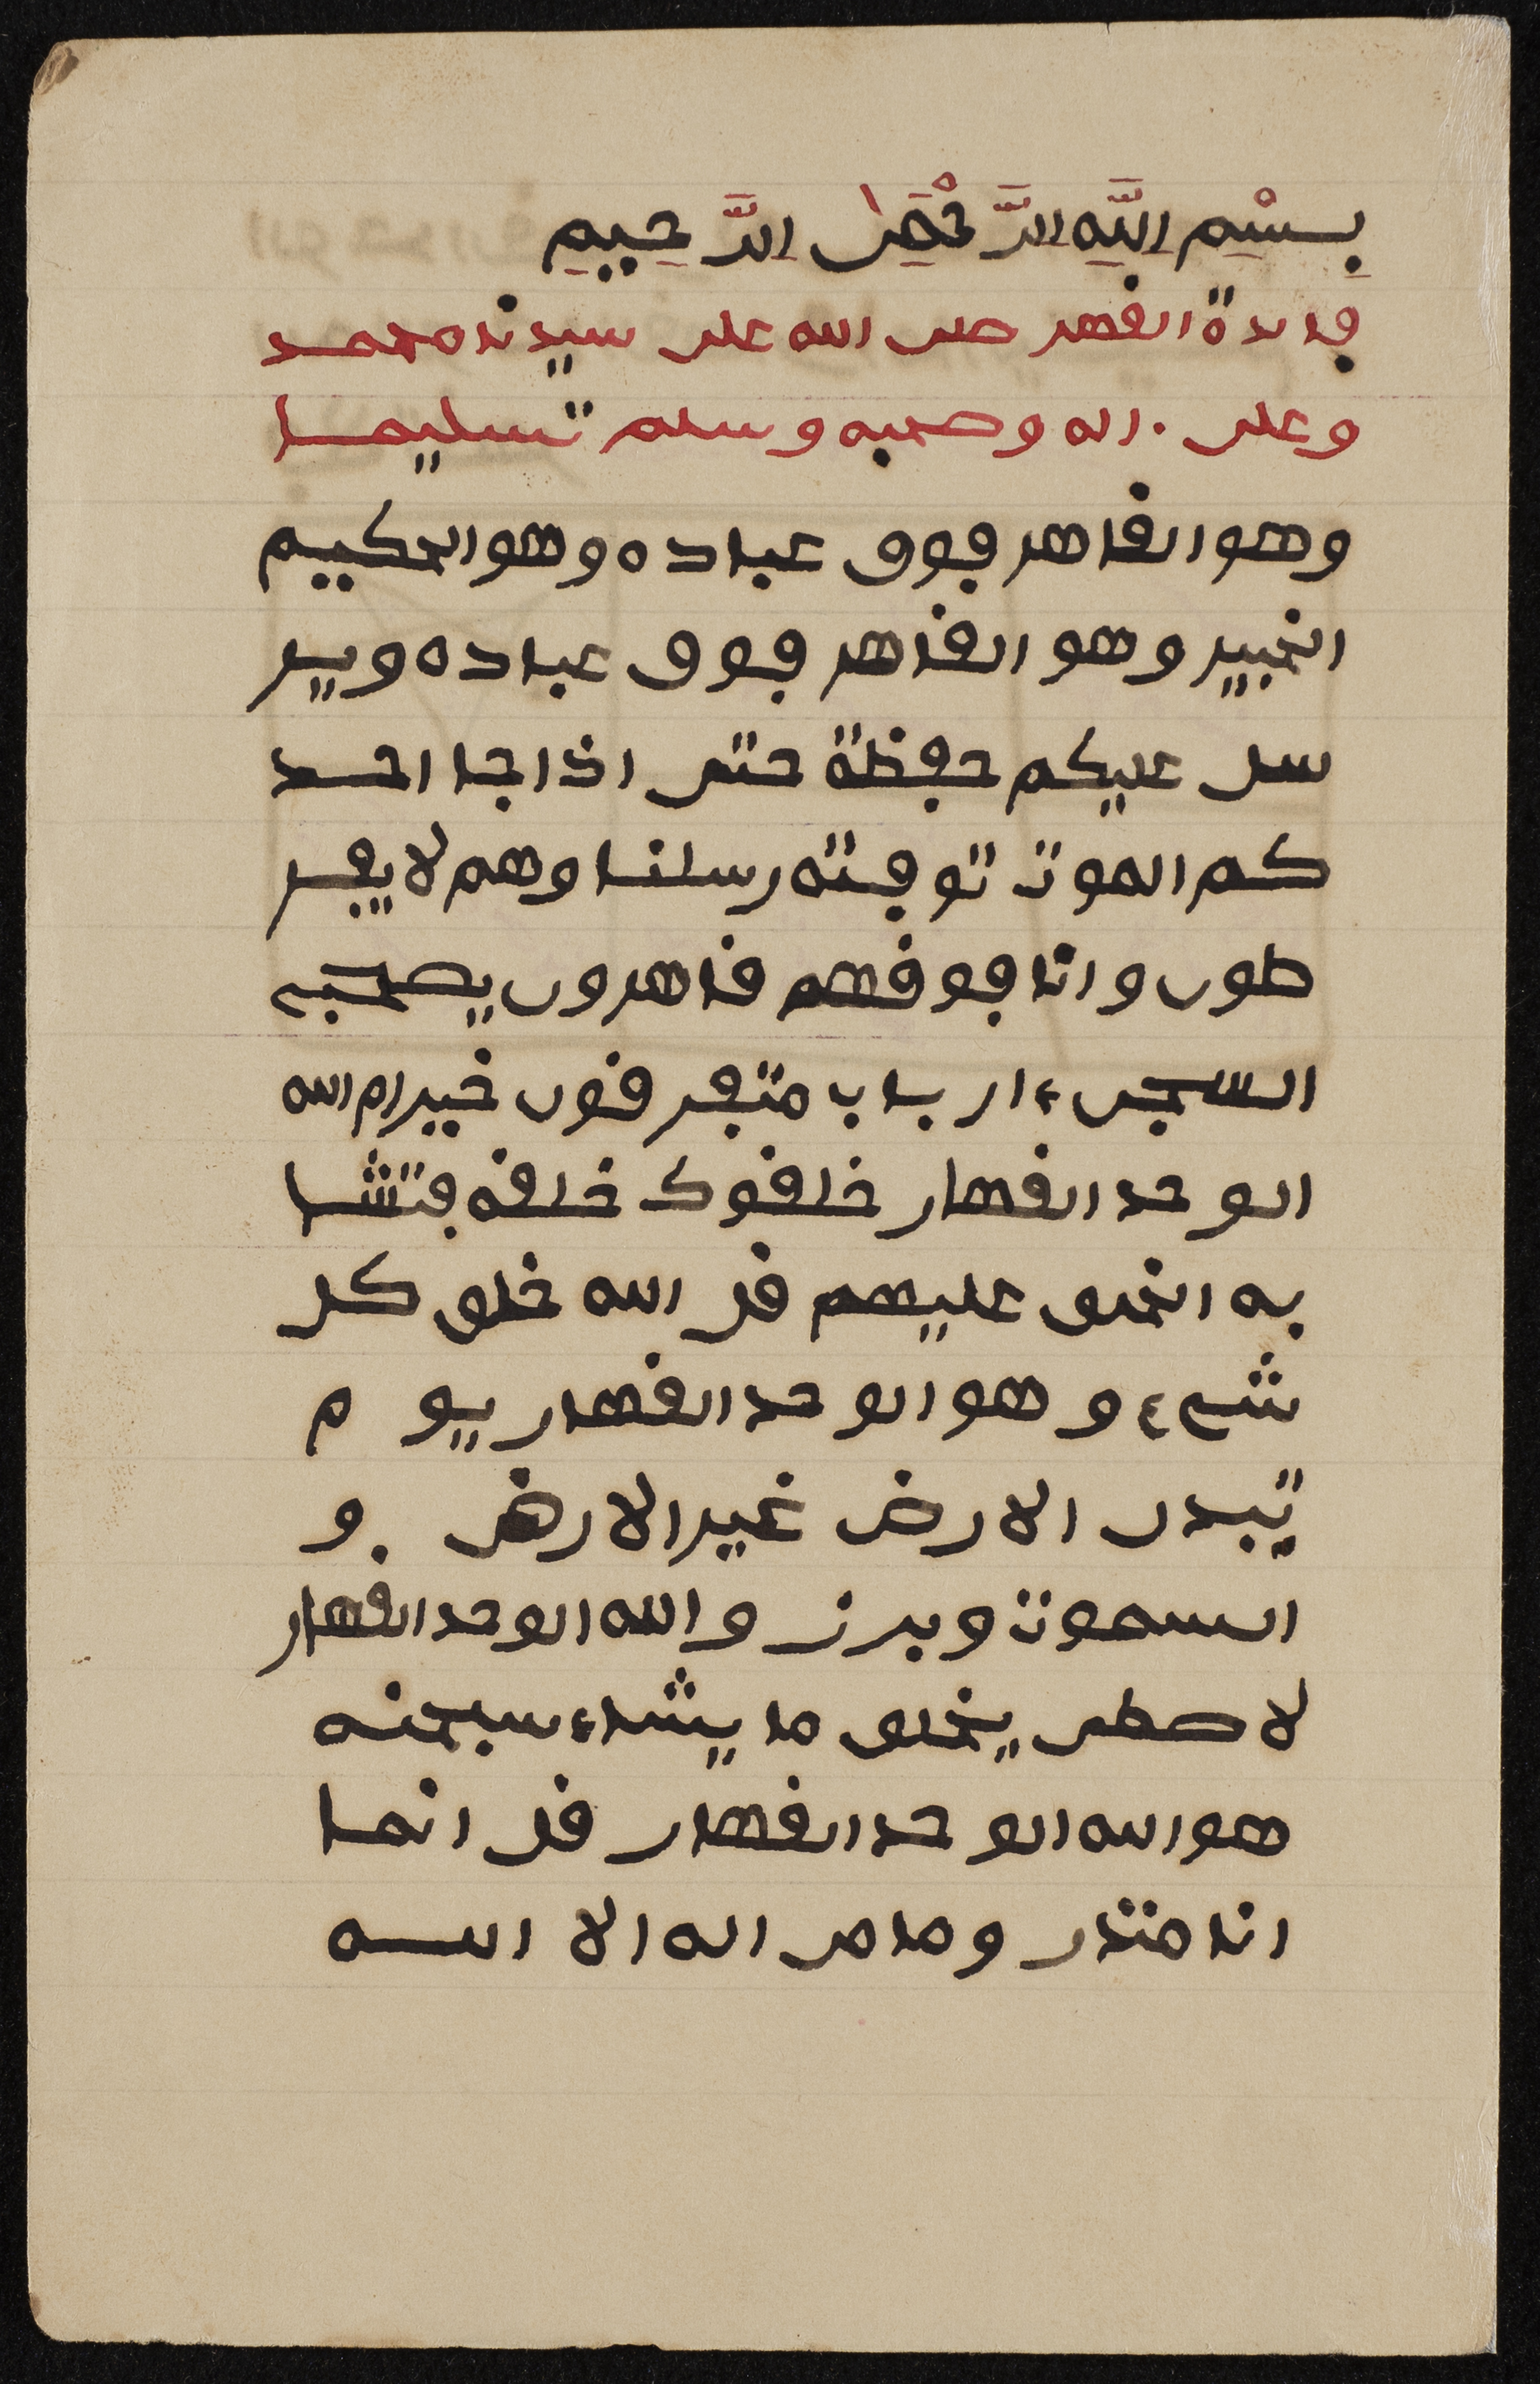 بِسْمِ اللَّهِ الرَّحْمَٰنِ الرَّحِيمِ
فايدة القهر صلى الله على سيدنا محمد
وعلى ءاله وصحبه وسلم تسليما
وهو القاهر فوق عباده وهو الحكيم
الخبير وهو القاهر فوق عباده وير
سل عليكم حفظة حتى اذا جا احد
كم الموت توفته رسلنا وهم لا يفر
طون وانا فوقهم قاهرون يصحبى
السجن ءارباب متفرقون خير ام الله
الوحد القهار خلقوا كخلقه فتشا
به الخلق عليهم قل الله خلق كل
شىء وهو الوحد القهار يوم
تبدل الارض غير الارض و
السموت وبرزوا لله الوحد القهار
لاصطفى يخلق ما يشاء سبحنه
هو الله الوحد القهار قل انما
انا منذر وما من اله الا الله